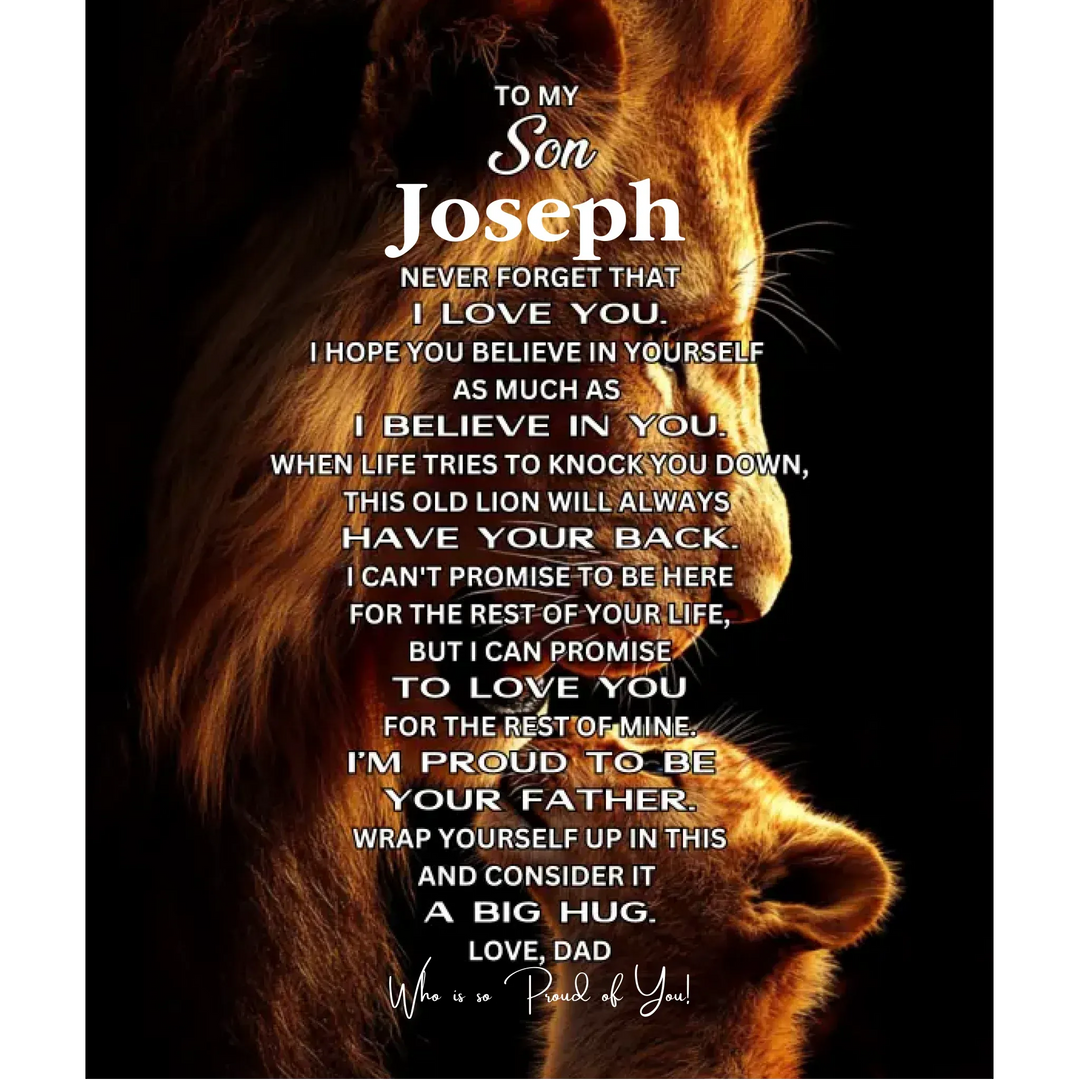 TO MY
Son
Joseph
NEVER FORGET THAT
I LOVE YOU.
I HOPE YOU BELIEVE IN YOURSELF
AS MUCH AS
I BELIEVE IN YOU.
WHEN LIFE TRIES TO KNOCK YOU DOWN,
THIS OLD LION WILL ALWAYS
HAVE YOUR BACK.
I CAN'T PROMISE TO BE HERE
FOR THE REST OF YOUR LIFE,
BUT I CAN PROMISE
TO LOVE YOU
FOR THE REST OF MINE.
I'M PROUD TO BE
YOUR FATHER.
WRAP YOURSELF UP IN THIS
AND CONSIDER IT
A BIG HUG.
LOVE, DAD
Who is so Proud of You!